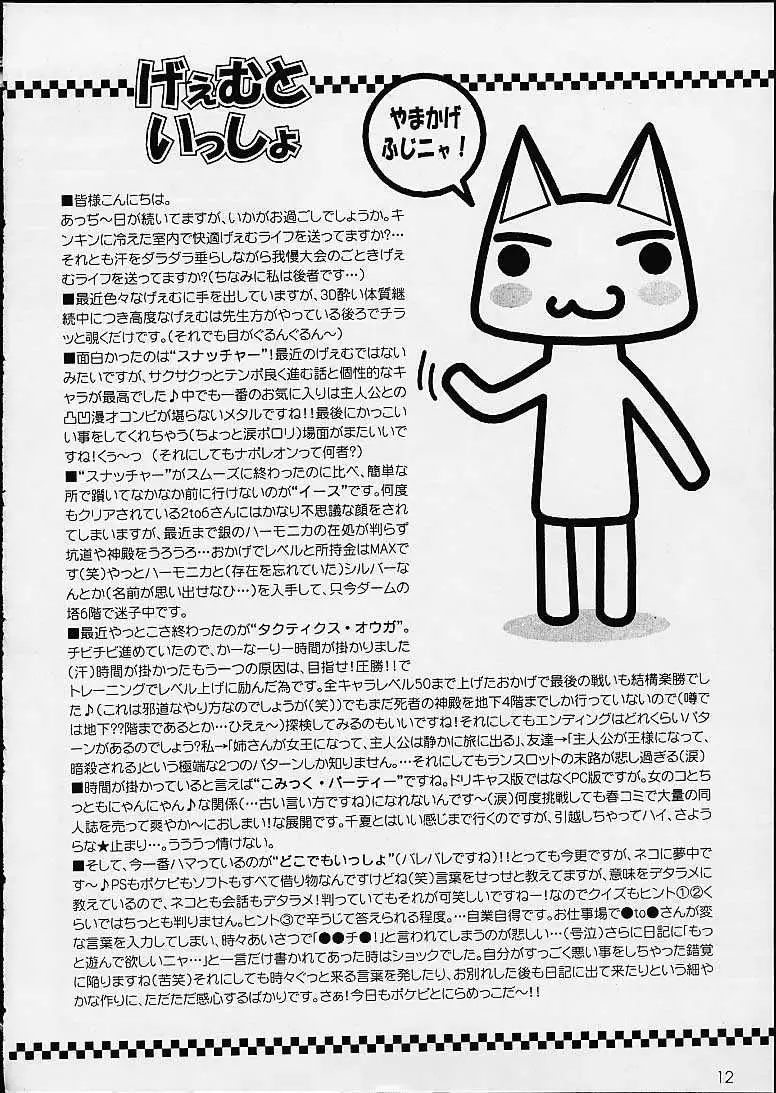 げぇむと
いっしょ
やまかげ
ふじニャ！
■皆様こんにちは。
あっぢ〜日が続いてますが、いかがお過ごしでしょうか。キ
ンキンに冷えた室内で快適げぇむライフを送ってますか?…
それとも汗をダラダラ垂らしながら我慢大会のごときげぇ
むライフを送ってますか?(ちなみに私は後者です…)
■最近色々なげぇむに手を出していますが、3D酔い体質継
続中につき高度なげぇむは先生方がやっている後ろでチラ
ッと覗くだけです。(それでも目がぐるんぐるん〜)
■面白かったのは“スナッチャー”!最近のげぇむではない
みたいですが、サクサクっとテンポ良く進む話と個性的なキ
ャラが最高でした♪中でも一番のお気に入りは主人公との
凸凹漫才コンビが堪らないメタルですね!!最後にかっこい
い事をしてくれちゃう(ちょっと涙ポロリ)場面がまたいいで
すね!くぅ〜っ　(それにしてもナポレオンって何者?)
■“スナッチャー”がスムーズに終わったのに比べ、簡単な
所で躓いてなかなか前に行けないのが“イース”です。何度
もクリアされている2to6さんにはかなり不思議な顔をされ
てしまいますが、最近まで銀のハーモニカの在処が判らず
坑道や神殿をうろうろ…おかげでレベルと所持金はMAXで
す(笑)やっとハーモニカと(存在を忘れていた)シルバーな
んとか(名前が思い出せなひ…)を入手して、只今ダームの
塔6階で迷子中です。
■最近やっとこさ終わったのが“タクティクス・オウガ”。
チビチビ進めていたので、かーなーりー時間が掛かりました
(汗)時間が掛かったもう一つの原因は、目指せ!圧勝!!で
トレーニングでレベル上げに励んだ為です。全キャラレベル50まで上げたおかげで最後の戦いも結構楽勝でし
た♪(これは邪道なやり方なのでしょうが(笑))でもまだ死者の神殿を地下4階までしか行っていないので(噂で
は地下??階まであるとか…ひえぇ〜)探検してみるのもいいですね!それにしてもエンディングはどれくらいパタ
ーンがあるのでしょう?私→「姉さんが女王になって、主人公は静かに旅に出る」、友達→「主人公が王様になって、
暗殺される」という極端な2つのパターンしか知りません。…それにしてもランスロットの末路が悲し過ぎる(涙)
■時間が掛かっていると言えば“こみっく・パーティー”ですね。ドリキャス版ではなくPC版ですが。女のコとちっ
ともにゃんにゃん♪な関係(…古い言い方ですね)になれないんです〜(涙)何度挑戦しても春コミで大量の同
人誌を売って爽やか〜におしまい!な展開です。千夏とはいい感じまで行くのですが、引越しちゃってハイ、さよう
らな★止まり…。うううっ情けない。
■そして、今一番ハマっているのが“どこでもいっしょ”(バレバレですね)!!とっても今更ですが、ネコに夢中で
す〜♪PSもポケピもソフトもすべて借り物なんですけどね(笑)言葉をせっせと教えてますが、意味をデタラメに
教えているので、ネコとも会話もデタラメ!判っていてもそれが可笑しいですねー!なのでクイズもヒント①②く
らいではちっとも判りません。ヒント③で辛うじて答えられる程度。…自業自得です。お仕事場で●to●さんが変
な言葉を入力してしまい、時々あいさつで「●●チ●!」と言われてしまうのが悲しい…(号泣)さらに日記に「もっ
と遊んで欲しいニャ…」と一言だけ書かれてあった時はショックでした。自分がすっごく悪い事をしちゃった錯覚
に陥りますね(苦笑)それにしても時々ぐっと来る言葉を発したり、お別れした後も日記に出て来たりという細や
かな作りに、ただただ感心するばかりです。さぁ!今日もポケピとにらめっこだ〜!!
12